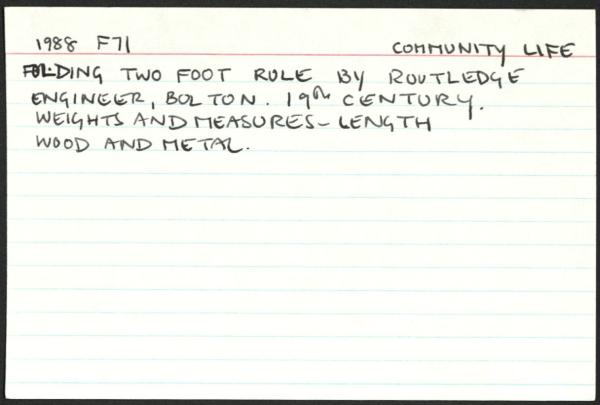 1988 F71 COMMUNITY LIFE
FOLDING TWO FOOT RULE BY ROUTLEDGE
ENGINEER, BOLTON. 19th CENTURY.
WEIGHTS AND MEASURES- LENGTH
WOOD AND METAL.